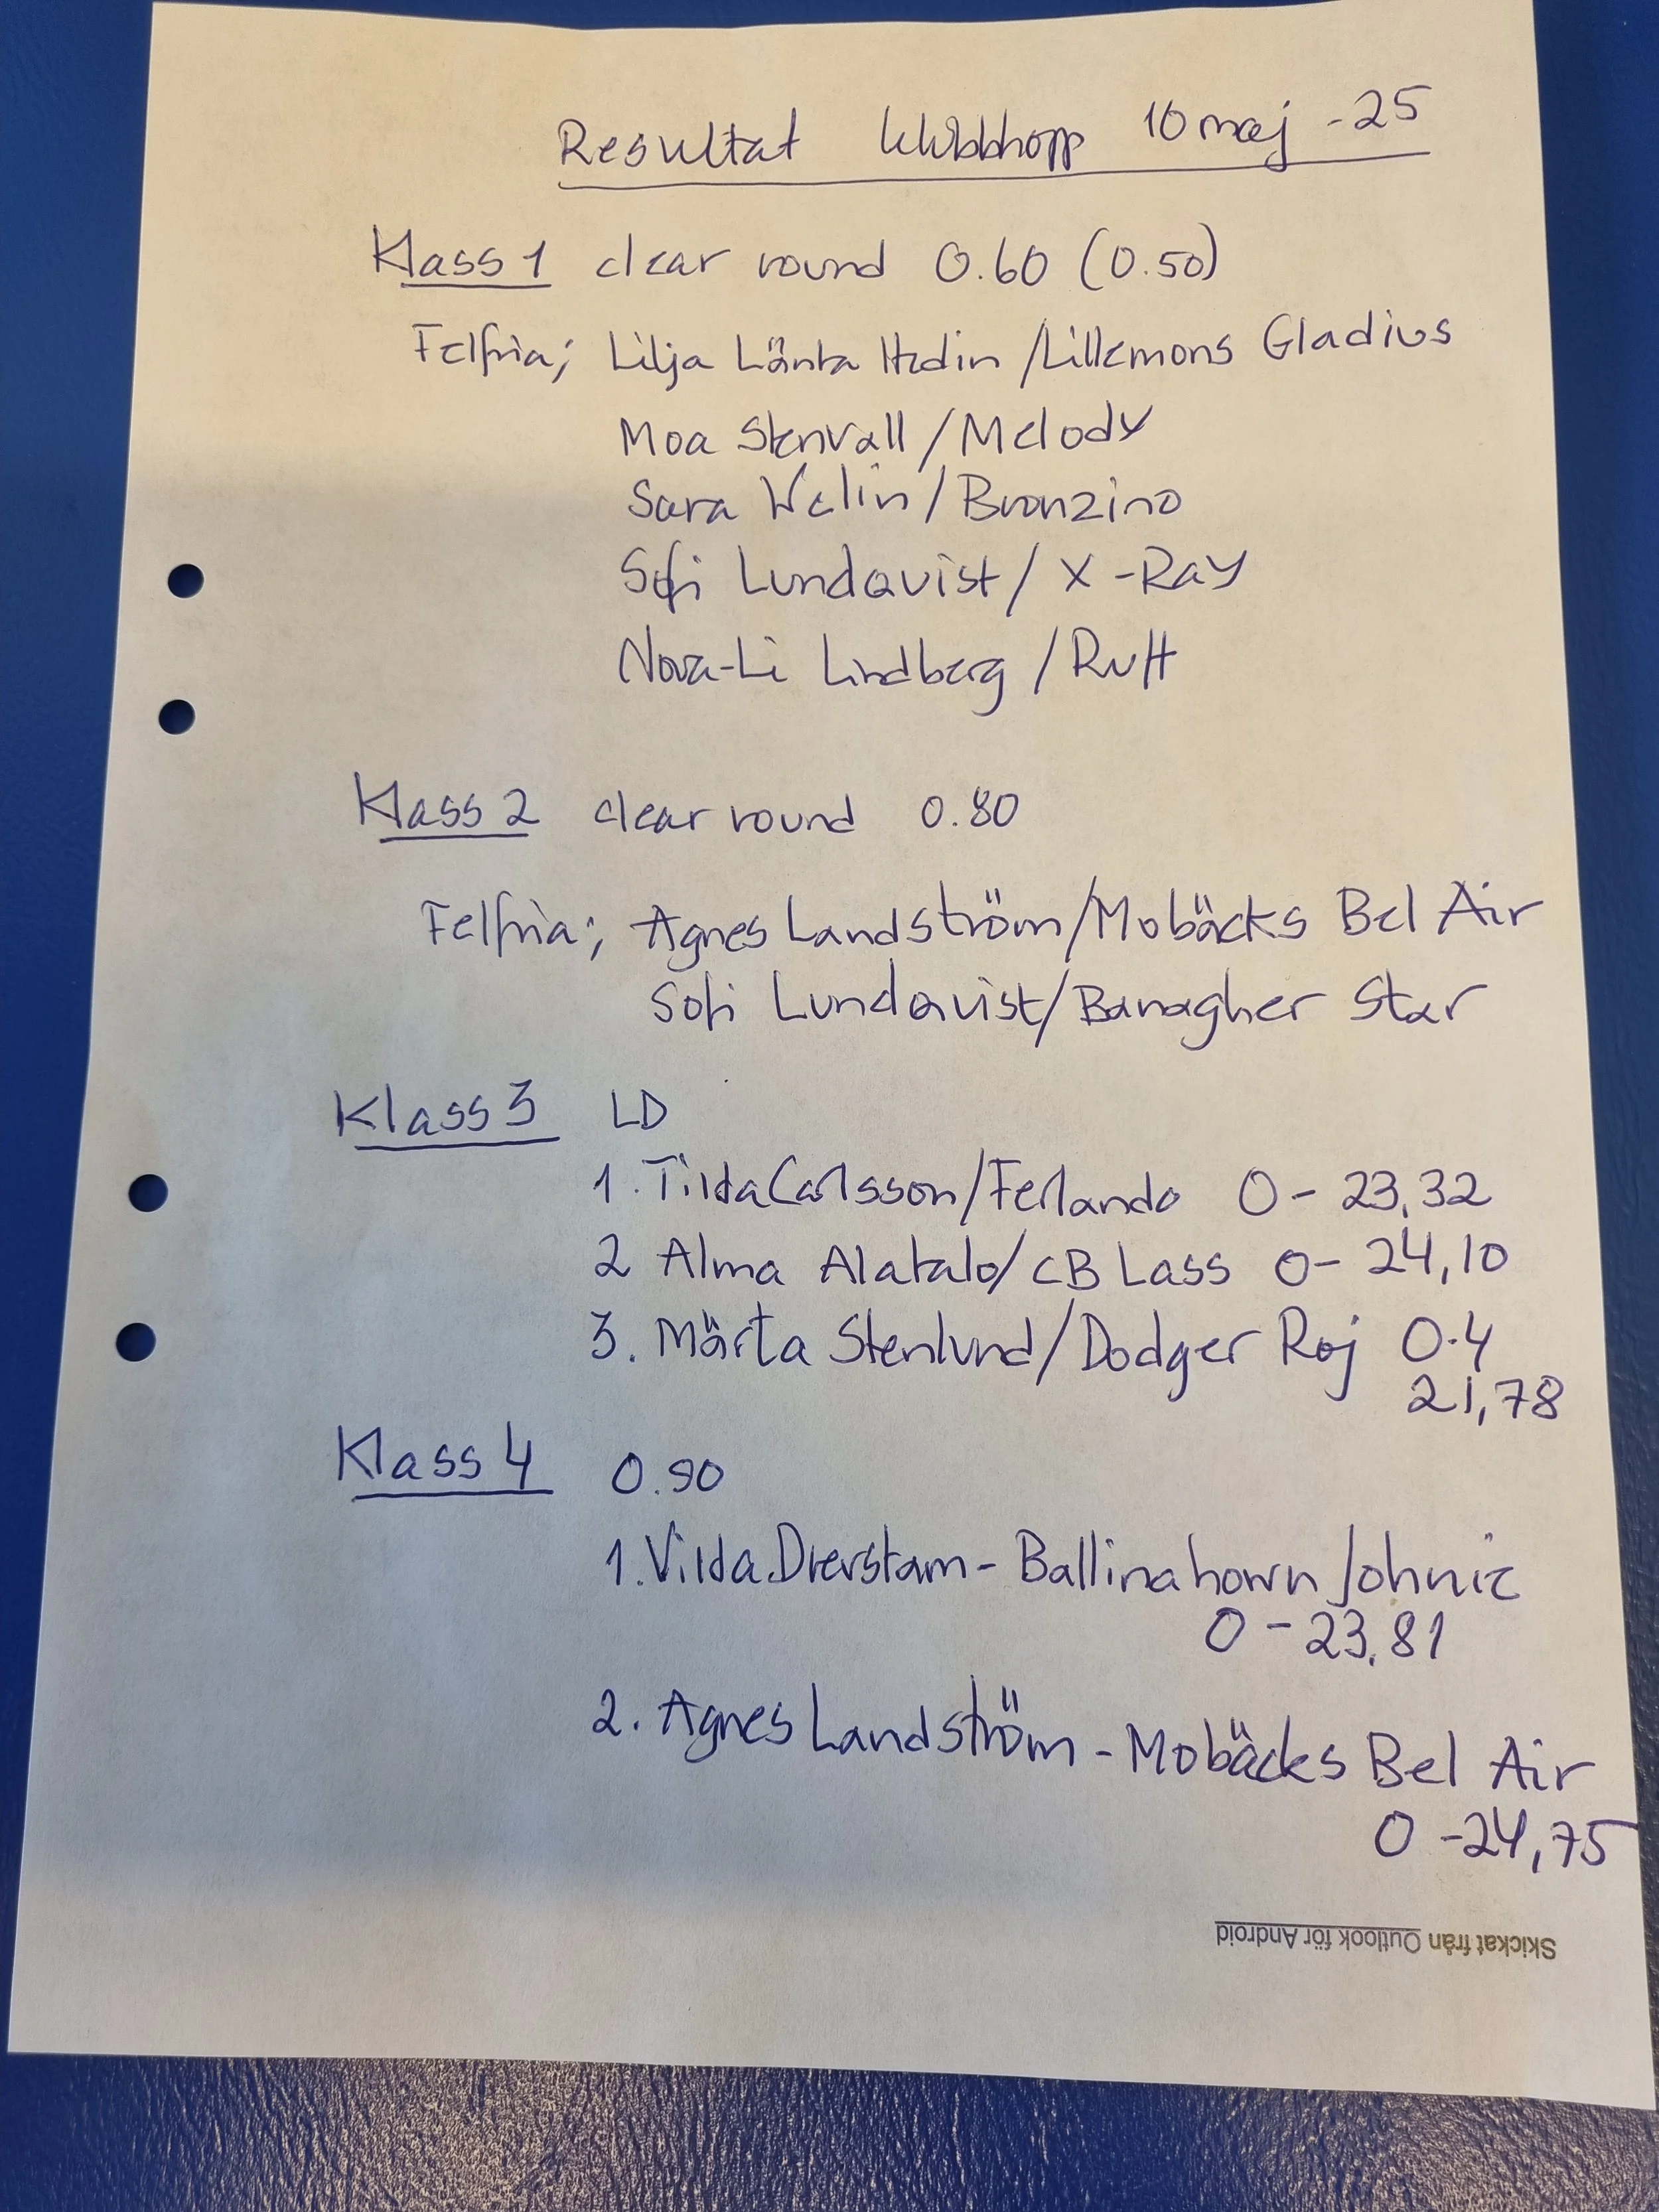 Resultat klubbhopp 10 maj -25
Klass 1 clear round 0.60 (0.50)
Felfria; Lilja Länta Hedin / Lillemons Gladius
Moa Stenvall / Melody
Sara Welin / Bronzino
Sofi Lundqvist / X-Ray
Nova-Li Lindberg / Rutt
Klass 2 clear round 0.80
Felfria; Agnes Landström / Mobäcks Bel Air
Sofi Lundqvist / Banagher Star
Klass 3 LD
1. Tilda Carlsson / Ferlando 0 - 23,32
2 Alma Alatalo / CB Lass 0 - 24,10
3. Märta Stenlund / Dodger Roj 0-4
21,78
Klass 4 0.90
1. Vilda Drevstam - Ballinahown Johnie
0 - 23,81
2. Agnes Landström - Mobäcks Bel Air
0 - 24,75
Skickat från Outlook för Android